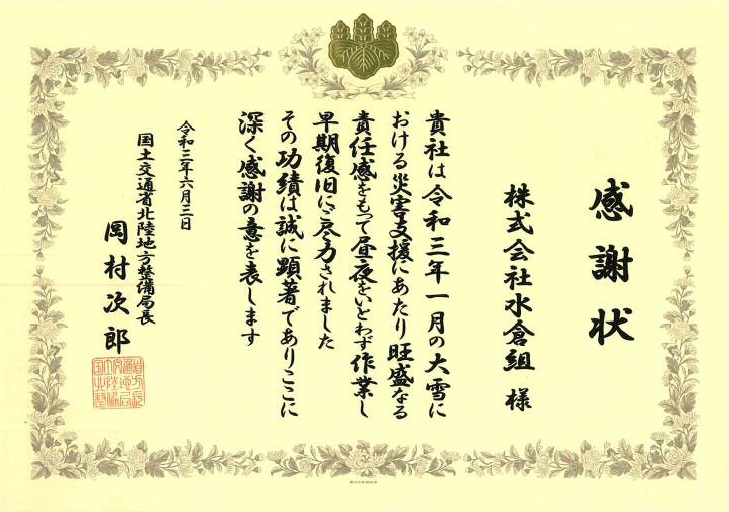 感謝状
株式会社水倉組 様
貴社は令和三年一月の大雪に
おける災害支援にあたり旺盛なる
責任感をもって昼夜をいとわず作業し
早期復旧にご尽力されました
その功績は誠に顕著でありここに
深く感謝の意を表します
令和三年六月三日
国土交通省北陸地方整備局長
岡村次郎